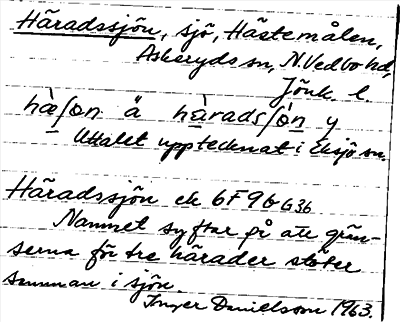 Häradssjön, sjö, Hästemålen,
Askeryds sn, N. Vedbo hd,
Jönk. l.
hàʃo̱n ä hà̱radsʃò̱n y
Uttalet upptecknat i Eksjö sn.
Häradssjön ek 6F9b G36
Namnet syftar på att grän-
serna för tre härader stöter
samman i sjön.
Inger Danielsson 1963.